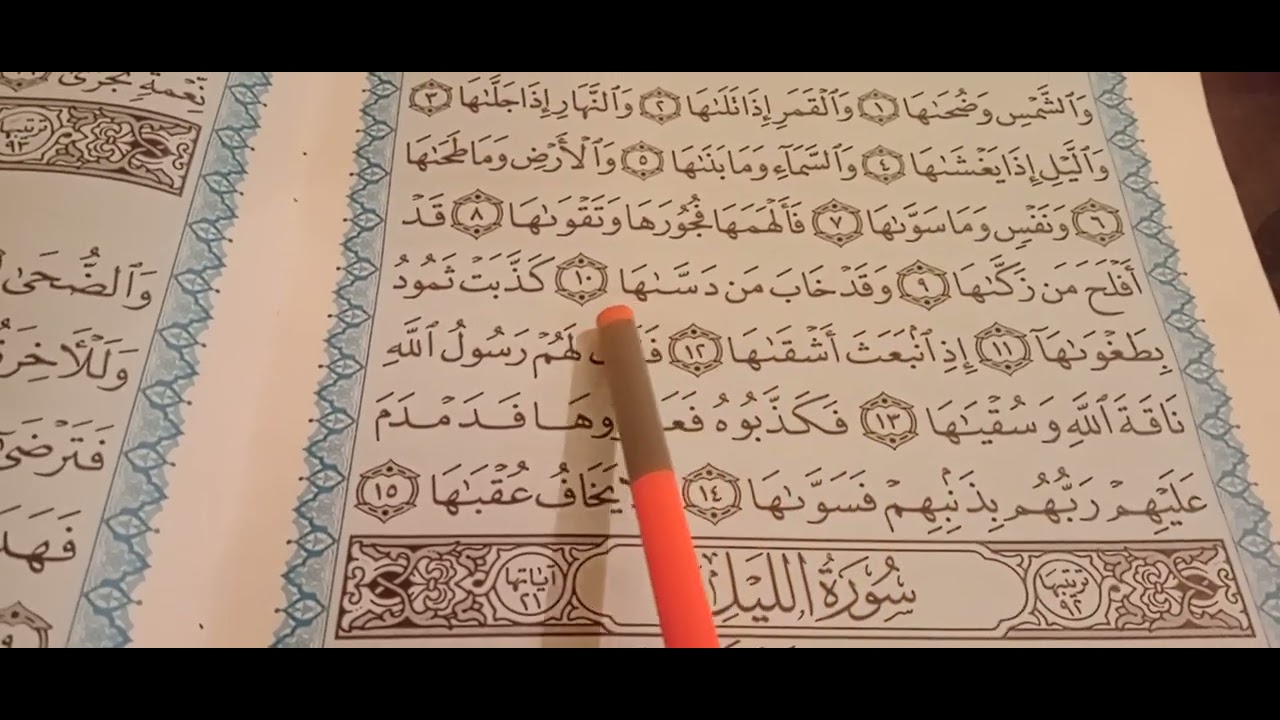 وَٱلشَّمْسِ وَضُحَىٰهَا ١ وَٱلْقَمَرِ إِذَا تَلَىٰهَا ٢ وَٱلنَّهَارِ إِذَا جَلَّىٰهَا ٣
وَٱلَّيْلِ إِذَا يَغْشَىٰهَا ٤ وَٱلسَّمَآءِ وَمَا بَنَىٰهَا ٥ وَٱلْأَرْضِ وَمَا طَحَىٰهَا
٦ وَنَفْسٍ وَمَا سَوَّىٰهَا ٧ فَأَلْهَمَهَا فُجُورَهَا وَتَقْوَىٰهَا ٨ قَدْ
أَفْلَحَ مَن زَكَّىٰهَا ٩ وَقَدْ خَابَ مَن دَسَّىٰهَا ١٠ كَذَّبَتْ ثَمُودُ
بِطَغْوَىٰهَآ ١١ إِذِ ٱنۢبَعَثَ أَشْقَىٰهَا ١٢ لَهُمْ رَسُولُ ٱللَّهِ
نَاقَةَ ٱللَّهِ وَسُقْيَـٰهَا ١٣ فَكَذَّبُوهُ فَدَمْدَمَ
عَلَيْهِمْ رَبُّهُم بِذَنۢبِهِمْ فَسَوَّىٰهَا ١٤ يَخَافُ عُقْبَـٰهَا ١٥
ترتيبها ٩٢ سُورَةُ اللَّيْلِ آياتها ٢١
نِّعْمَةٍ تُجْزَىٰٓ
ترتيبها ٩٣
وَٱلضُّحَىٰ
فَتَرْضَىٰٓ